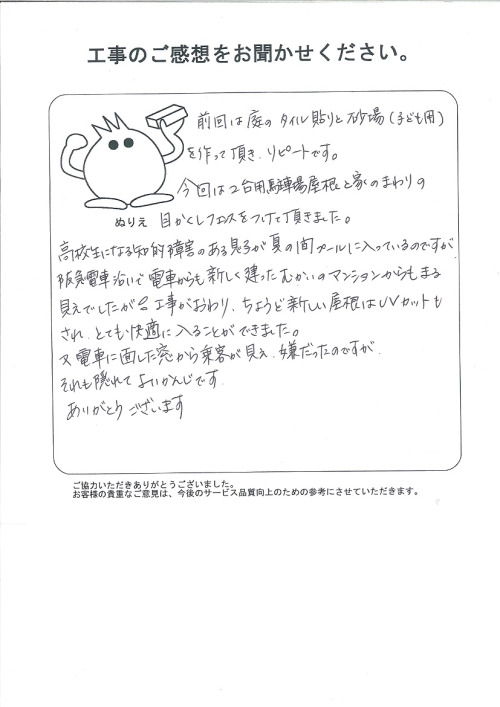 工事のご感想をお聞かせください。
前回は庭のタイル貼りと砂場(子ども用)
を作って頂き、リピートです。
今回は2台用駐車場屋根と家のまわりの
ぬりえ
目かくしフェンスをつけて頂きました。
高校生になる知的障害のある息子が夏の間プールに入っているのですが
阪急電車沿いで電車からも新しく建ったむかいのマンションからもまる
見えでしたが 工事がおわり、ちょうど新しい屋根はUVカットも
され、とても快適に入ることができました。
又電車に面した窓から乗客が見え、嫌だったのですが、
それも隠れてよいかんじです。
ありがとうございます
ご協力いただきありがとうございました。
お客様の貴重なご意見は、今後のサービス品質向上のための参考にさせていただきます。